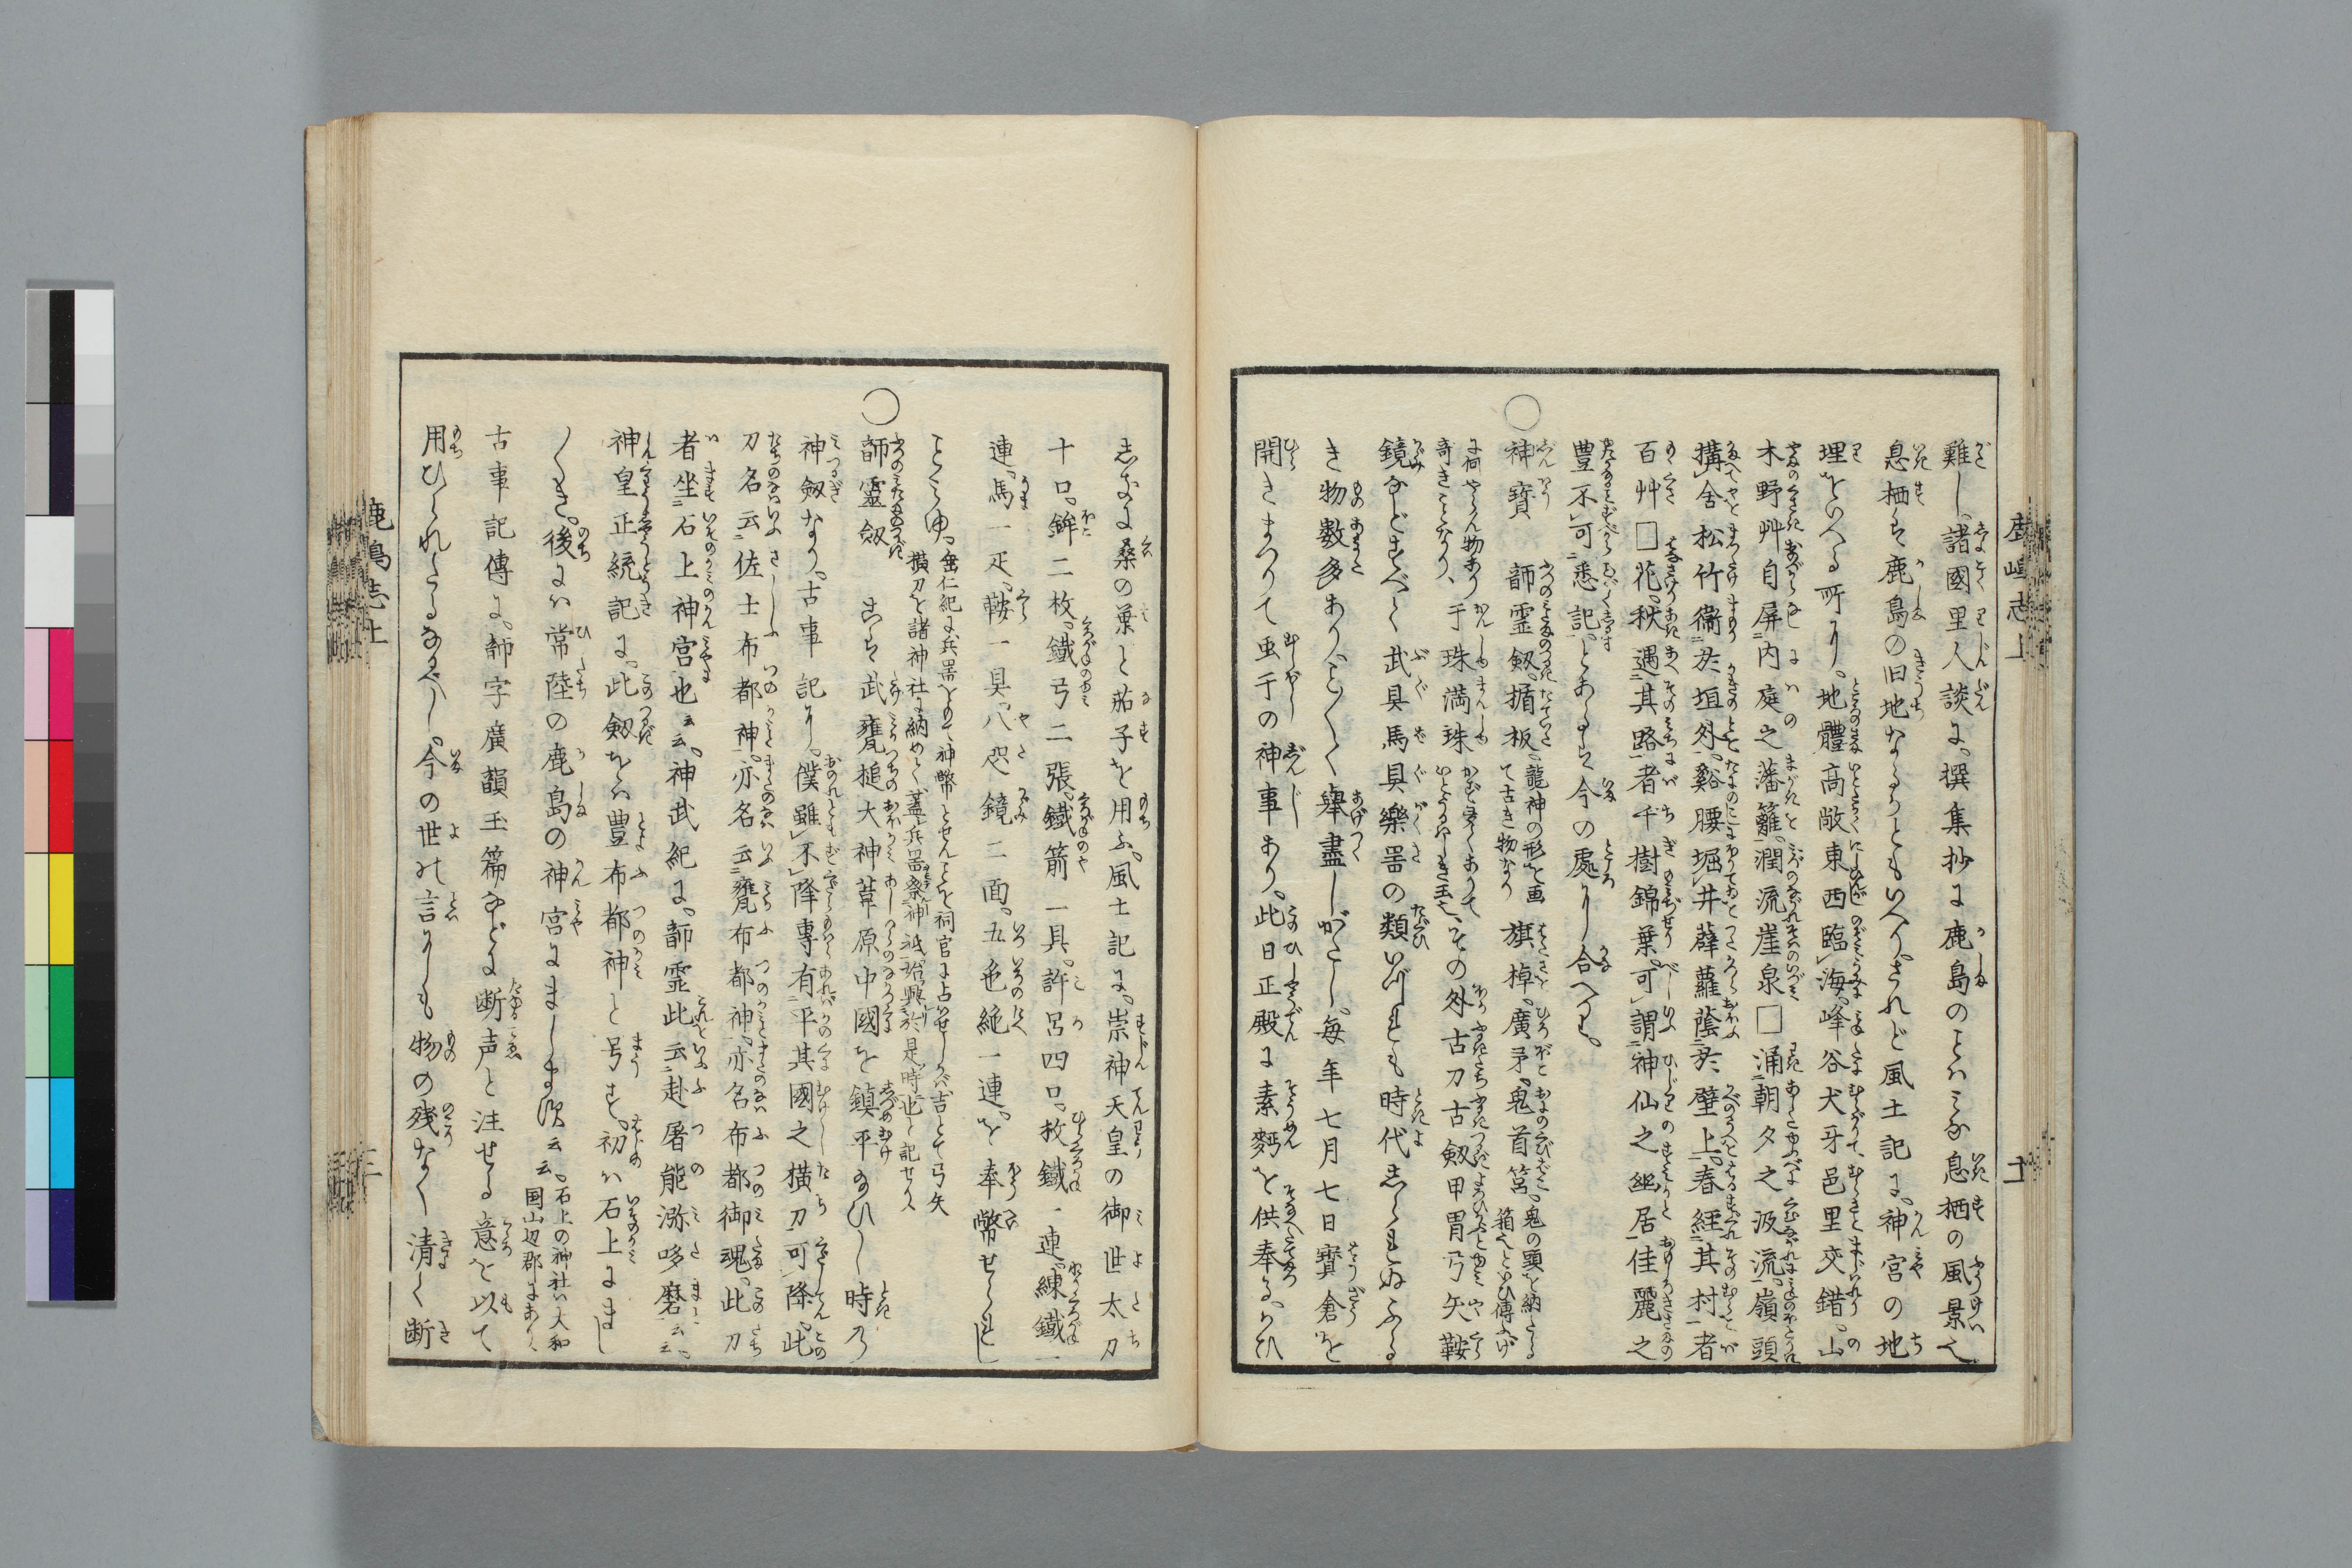 難し。諸國里人談に。撰集抄に鹿島のことはみな息栖の風景也
息栖は鹿島の旧地なるかともいへり。されど風土記に。神宮の地
理をいへる所に。地體高敞東西臨海。峰谷犬牙邑里交錯。山
木野艸自屏内庭之藩籬。潤流崖泉□涌朝夕之汲流。嶺頭
搆舍松竹衞於垣外。谿腰堀井薜蘿蔭於壁上。春經其村者
百艸□花。秋遇其路者千樹錦葉。可謂神仙之幽居佳麗之
豊不可悉記。とあるは今の處に合へり。
○神寳 韴霊劔。楯板。龍神の形を画て古き物なり 旗棹。廣矛。鬼首筥。鬼の頭を納たる箱也といひ傳ふ
奇きことなり、干珠満珠 その外古刀古劔甲冑弓矢鞍
鏡などすべて武具馬具樂噐の類いづれも時代しられぬふる
き物數多あり。ことごとく舉盡しがたし。毎年七月七日寳倉を
開きまつりて虫干の神事あり。此日正殿に素麪を供奉る。
鹿嶋志上
しなに桑の菓と茄子を用ふ。風土記に。崇神天皇の御世太刀
十口。鉾二枚。鐵弓二張。鐵箭一具。許呂四口。枚鐵一連。練鐵一
連。馬一疋。鞍一具。八咫鏡二面。五色絁一連。を奉幣せられし
ことみゆ。垂仁紀に兵噐をもて神幣とせんことを祠官に占はせしかば吉とて弓矢
横刀を諸神社に納めて。蓋兵噐祭神祇。始興於是時也と記せり
○韴靈劔 こは武甕槌大神葦原中國を鎮平給ひし時の
神劔なり。古事記に。僕雖不降專有平其國之横刀可降。此
刀名云佐士布都神。亦名云甕布都神。亦名布都御魂。此刀
者坐石上神宮也云云。神武紀に。韴霊此云赴屠能瀰哆磨云云。
神皇正統記に。此劔をは豊布都神と号す。初は石上にまし
〱き。後には常陸の鹿島の神宮にまします云云。石上の神社は大和国山辺郡にあり
古事記傳に。韴字廣韻玉篇などに断声と注せる意を以て
用ひられたるなるべし。今の世の言にも物の残なく清く断
鹿嶋志上